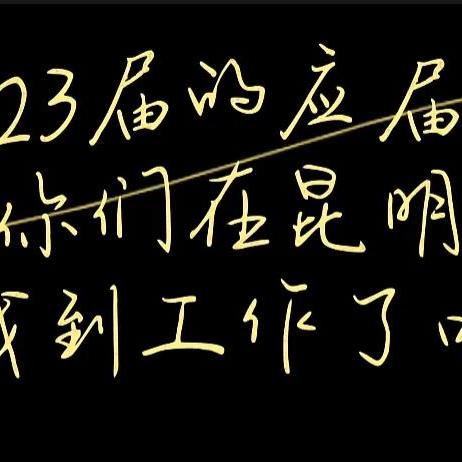 23届的应届
你们在昆明
找到工作了